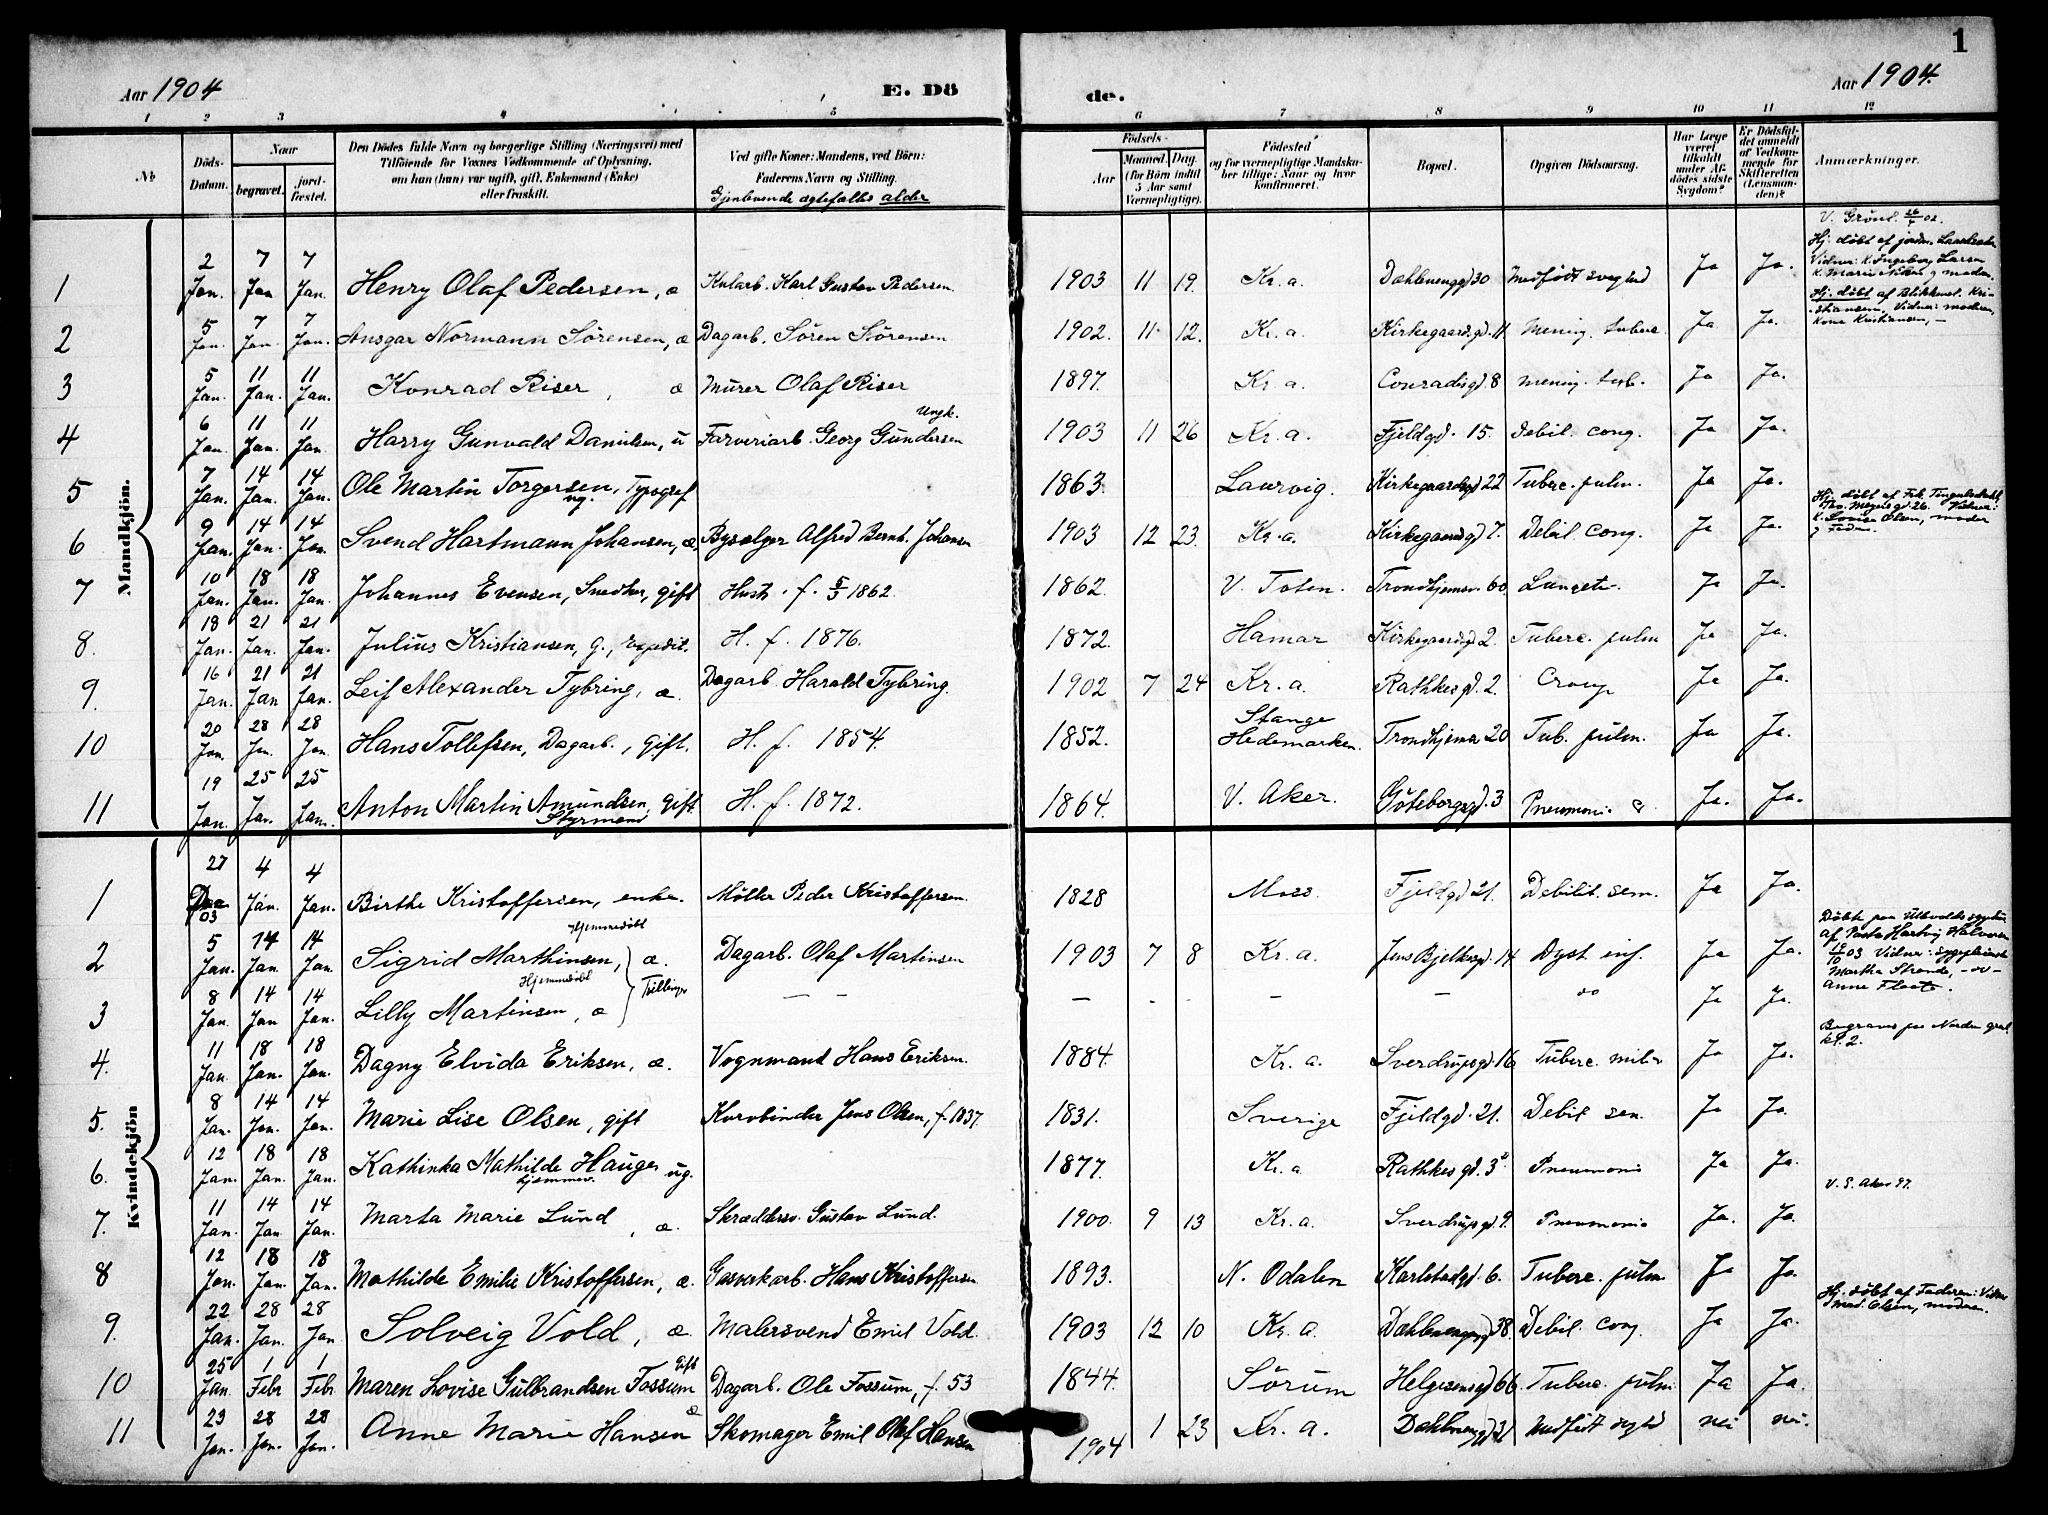 1
Aar 1904 E. Dö de. Aar 1904.
1 2 3 4 5 6 7 8 9 10 11 12
No
Döds-Datum.
Naar
begravet. jord-fæstet.
Den Dödes fulde Navn og borgerlige Stilling (Næringsvei) med
Tilföiende for Voxnes Vedkommende af Oplysning,
om han (hun) var ugift, gift, Enkemand (Enke)
eller fraskilt.
Ved gifte Koner: Mandens, ved Börn:
Faderens Navn og Stilling.
Gjenlevende ægtefælles alder
Födsels-
Aar Maaned Dag
(for Börn indtil 5 Aar samt Værnepligtige).
Födested
og for værnepligtige Mandskaber tillige: Naar og hvor Konfirmeret.
Bopæl.
Opgiven Dödsaarsag.
Har Læge været tilkaldt under Afdödes sidste Sygdom?
Er Dödsfaldet anmeldt af Vedkommende for Skifteretten (Lensmanden)?
Anmærkninger.
Mandkjön.
1 2 Jan. 7 Jan 7 Jan. Henry Olaf Pedersen, æ Kularb. Karl Gustav Pedersen. 1903 11 19. Kr. a. Dahlenenggd 30 Medfödt svaghed Ja Ja.
V. Grönl. 26/ 02.
Hj. döbt af jordm.
Vidner: K. Ingeborg Larsen
K. Marie & moden.
2 5 Jan. 7 Jan. 7 Jan. Ansgar Normann Sörensen, æ Dagarb. Sören Sörensen 1902. 11 12. Kr. a. Kirkegaardsgd. 11. Mening. tuberc. Ja Ja.
Hj. döbt af Blikkensl. Kristiansen, Vidner: moderen, Kone Kristiansen, —
3 5 Jan. 11 Jan. 11 Jan. Konrad Riser, æ Murer Olaf Riser 1897. Kr. a. Conradisgd. 8 Mening. tub. Ja Ja.
4 6 Jan. 11 Jan. 11 Jan. Harry Gunvald Danielsen, u Farveriarb. Georg Gundersen Ungk. 1903 11 26 Kr. a. Fjeldgd. 15. Debil. cong. Ja Ja.
5 7 Jan. 14 Jan. 14 Jan. Ole Martin Torgersen, ug. Typograf 1863. Laurvig. Kirkegaardsgd 22 Tuberc. pulm. Ja Ja.
6 9 Jan. 14 Jan. 14 Jan. Svend Hartmann Johansen, æ. Bysælger Alfred Bernh. Johansen 1903 12 23. Kr. a. Kirkegaardsgd 7. Debil. cong. Ja Ja.
Hj. döbt af Frk.
Ths. Meyersgd. 26. Vidner:
K. Lovise Olsen, moder
7 10 Jan. 18 Jan. 18 Jan. Johannes Evensen, Snedker, gift Hustr. f. 5/3 1862. 1862. V. Toten. Trondhjemsv. 60 Lungetu. Ja Ja.
8. 18 Jan. 21 Jan. 21 Jan. Julius Kristiansen, g., Expedit. H. f. 1876. 1872. Hamar Kirkegaardsgd 2. Tuberc. pulm Ja Ja.
9. 16 Jan. 21 Jan 21 Jan. Leif Alexander Tybring, æ. Dagarb. Harald Tybring. 1902 7 24 Kr. a. Rathkesgd. 2. Croup Ja Ja.
10 20 Jan. 28 Jan. 28 Jan Hans Tollefsen, Dagarb., Gift. H. f. 1854. 1852. Stange Hedemarken. Trondhjemsv 20 Tub. pulm. Ja Ja.
11 19 Jan. 25 Jan. 25 Jan. Anton Martin Amundsen, gift. Styrmand H. f. 1872. 1864. V. Aker. Göteborggd. 3 Pneumoni Ja. Ja.
Kvindekjön
1 27 Dec 03 4 Jan. 4 Jan. Birthe Kristoffersen, enke. Möller Peder Kristoffersen. 1828 Moss. Fjeldgd 21. Debilit. sen. Ja Ja.
2 5 Jan. 14 Jan 14 Jan. Sigrid Marthinsen, Hjemmedöbt æ. Dagarb. Olaf Martinsen 1903 7 8 Kr. a. Jens Bjelkesgd. 14 Dyst inf. Ja Ja.
Döbte paa Ullevolds sygehus
af Pastor Hartvig Halvorsen
/10 03 Vidner: sygepleierske
Martha Strande, — oo —
Anne Flaate.
3 8 Jan. 14 Jan 14 Jan. Lilly Martinsen, Hjemmedöbt æ Tvillinger — — — - - — — oo Ja Ja.
4. 11 Jan. 18 Jan. 18 Jan. Dagny Elvida Eriksen, æ. Vognmand Hans Eriksen. 1884 Kr. a. Sverdrupsgd. 16 Tuberc. mil Ja Ja.
Begraves paa Nordre gravl. kl. 2.
5. 8 Jan. 14 Jan. 14 Jan. Marie Lise Olsen, gift Kurvbinder Jens Olsen, f. 1837. 1831. Sverige Fjeldgd. 21. Debil sen. Ja Ja.
6. 12 Jan. 18 Jan. 18 Jan. Kathinka Mathilde Hauger ug. 1877. Kr. a Rathkesgd. 3 Pneumoni Ja Ja.
7. 11 Jan. 14 Jan 14 Jan. Marta Marie Lund, æ. Skrædders. Gustav Lund. 1900. 9 13 Kr. a. Sverdrupsgd. 9. Pneumoni Ja. Ja.
V. Ö. Aker 97.
8 12 Jan. 18 Jan. 18 Jan. Mathilde Emilie Kristoffersen, æ. Gasverkarb. Hans Kristoffersen 1893. N. Odalen Karlstadgd. 6. Tuberc. pulm Ja Ja.
9. 22 Jan. 28 Jan. 28 Jan Solveig Vold, æ. Malersvend Emil Vold. 1903 12 10 Kr. a. Dahlenenggd 38. Debil. cong. Ja Ja.
Hj. döbt af Faderen: Vidner Mad. Olsen, moderen.
10 25 Jan. 1 Febr 1 Febr Maren Lovise Gulbrandsen Fossum Gift Dagarb. Ole Fossum, f. 53 1844. Sörum Helgesensgd 66. Tuberc. pulm. Ja Ja.
11 23 Jan. 28 Jan. 28 Jan. Anne Marie Hansen æ Skomager Emil Olaf Hansen 1904 1 23 Kr. a. Dahlenenggd 31 Medfödt svagh nei nei.